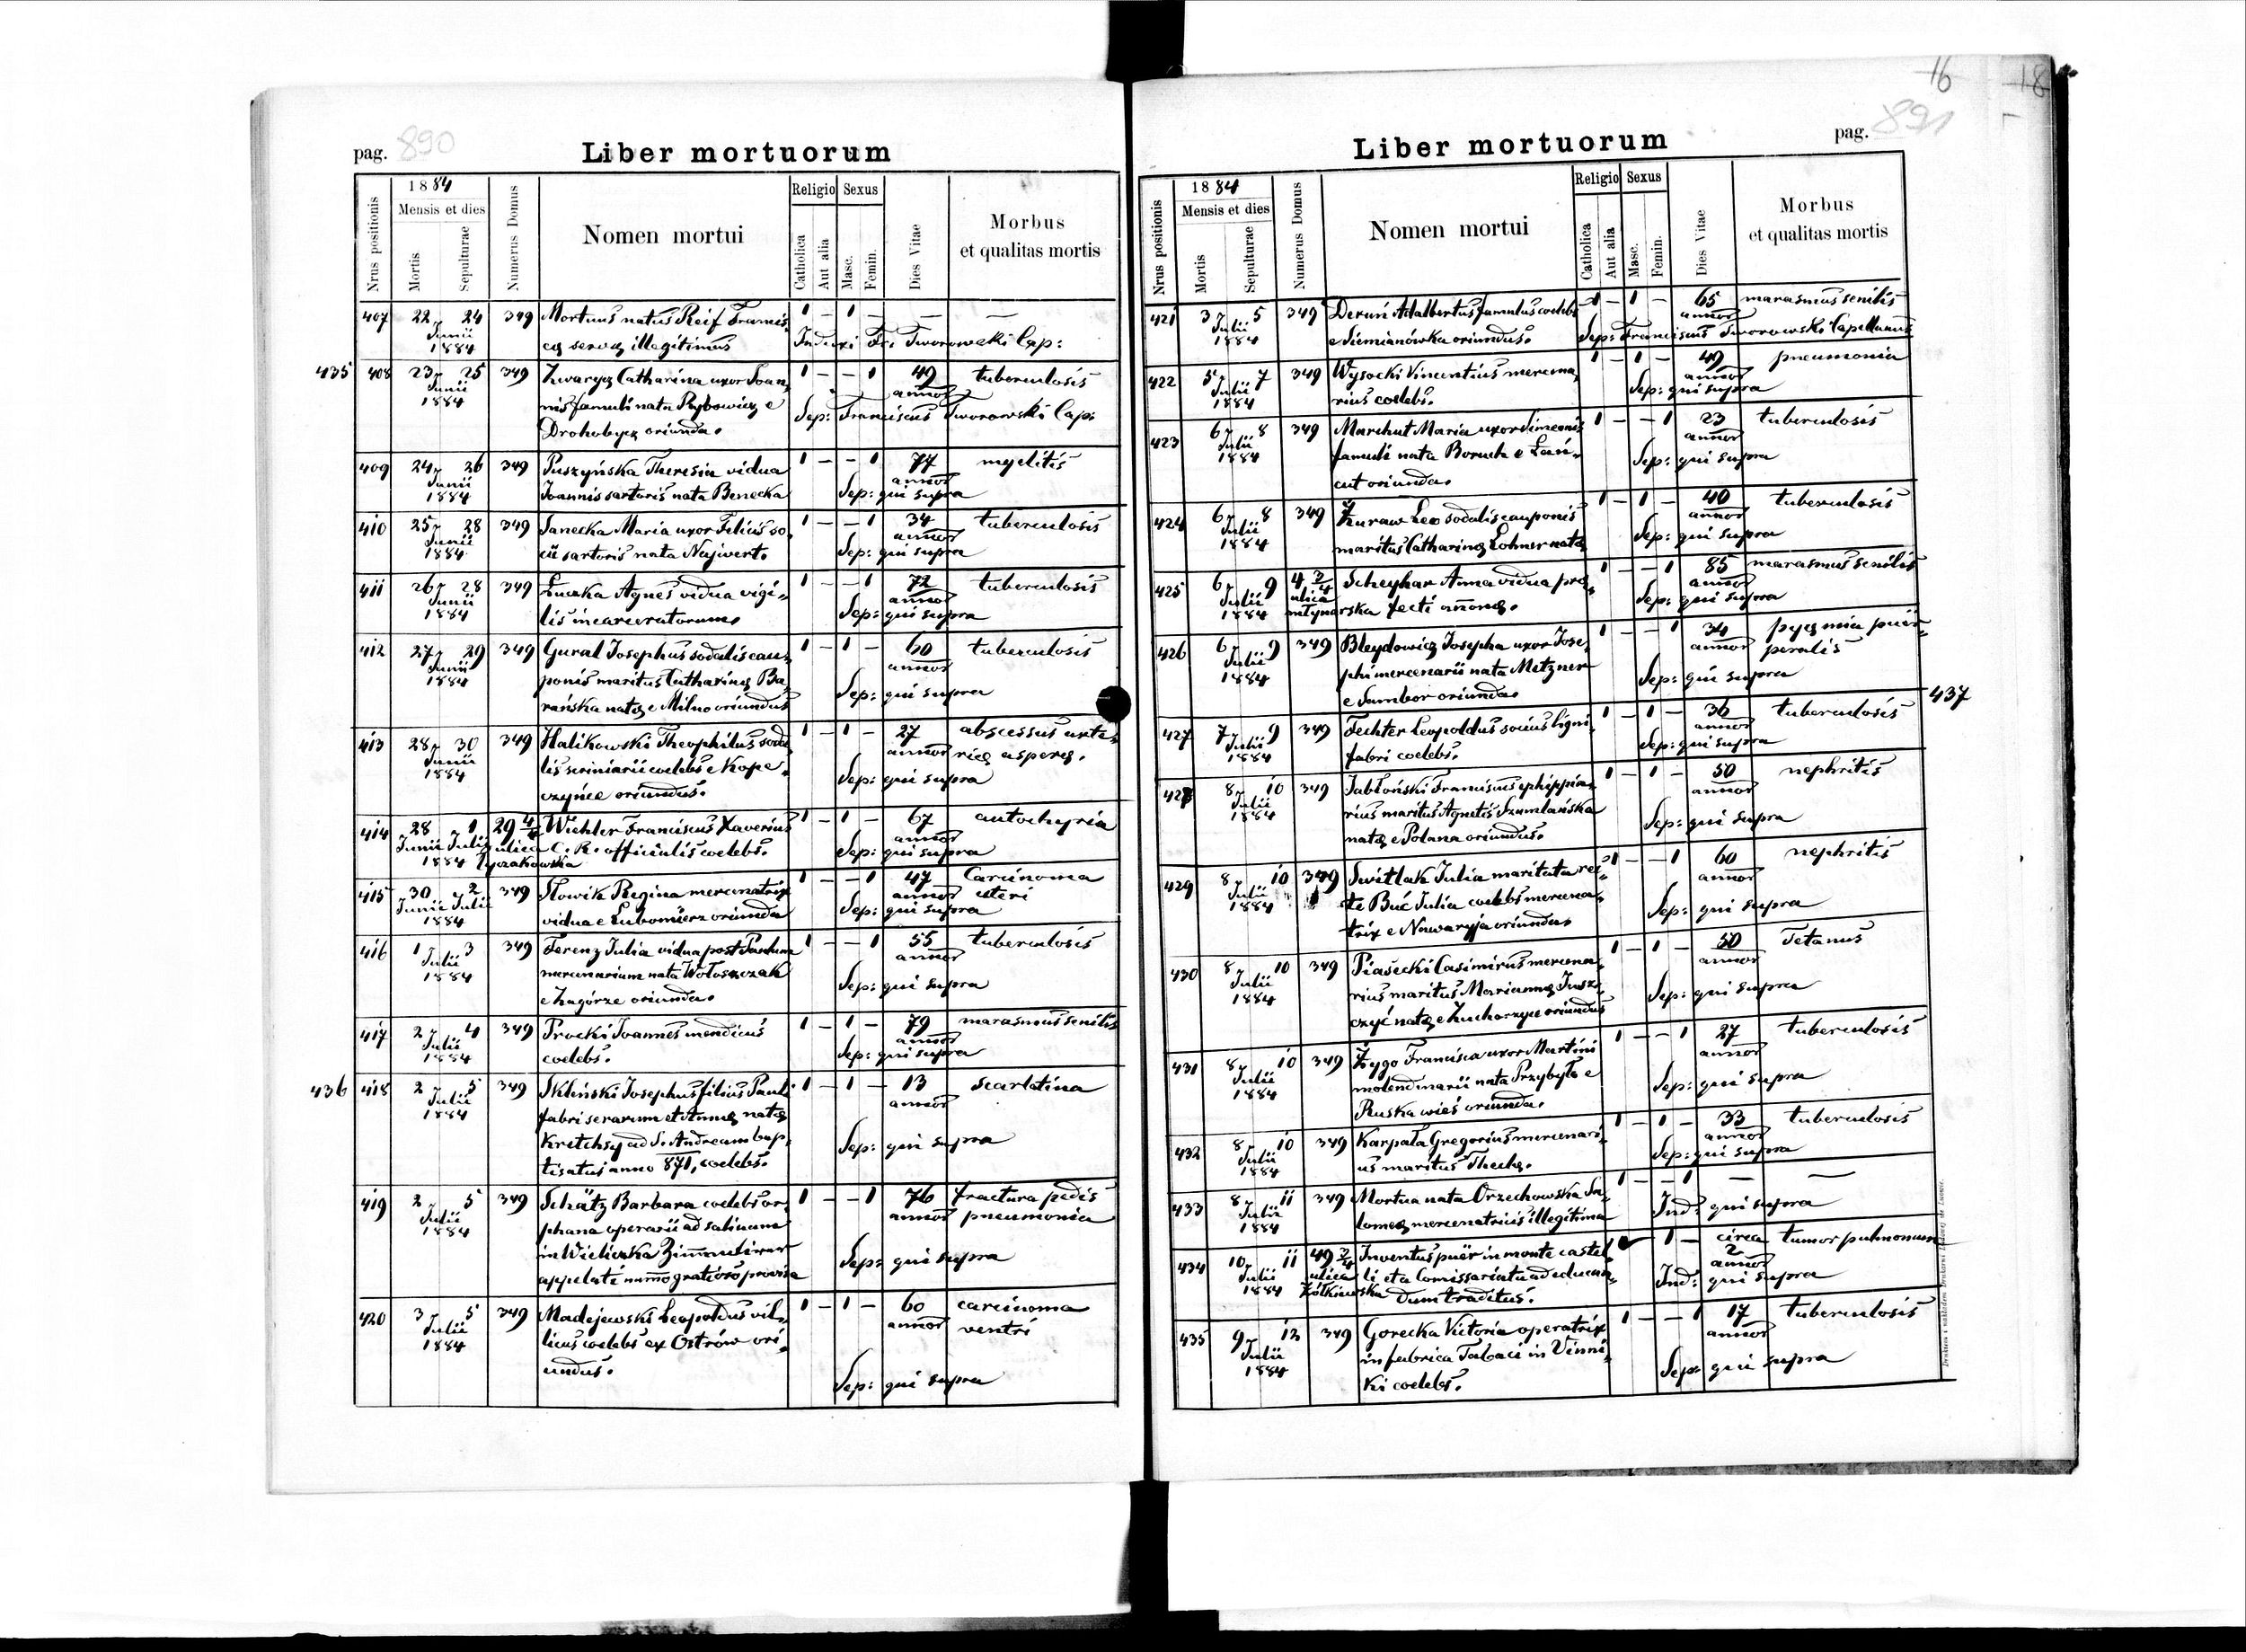 16 18
pag. 890
Liber mortuorum
1884
Religio Sexus
Mensis et dies
Nrus positionis
Mortis
Sepulturae
Numerus Domus
Nomen mortui
Catholica
Aut alia
Masc.
Femin.
Dies Vitae
Morbus
et qualitas mortis
407 22 24 349 Mortuus natus Reif Francis- 1 – 1 – – –
Junii cę servę illegitimus Induxi Fr: Tworowski Cap:
1884
435 408 23 25 349 Zwarycz Catharina uxor Joan- 1 – – 1 49 tuberculosis
Junii nis famuli nata Rybowicz e annor
1884 Drohobycz oriunda. Sep: Franciscus Tworowski Cap:
409 24 26 349 Puszyńska Theresia vidua 1 – – 1 77 myelitis
Junii Joannis sartoris nata Benecka annor
1884 Sep: qui supra
410 25 28 349 Janecka Maria uxor Felicis so- 1 – – 1 34 tuberculosis
Junii cii sartoris nata Najwert. annor
1884 Sep: qui supra
411 26 28 349 Łucka Agnes vidua vigi- 1 – – 1 72 tuberculosis
Junii lis incarceratorum. annor
1884 Sep: qui supra
412 27 29 349 Gural Josephus sodalis cau- 1 – 1 – 60 tuberculosis
Junii ponis maritus Catharinę Ba- annor
1884 rańska natę e Milno oriundus Sep: qui supra
413 28 30 349 Halikowski Theophilus soda- 1 – 1 – 27 abscessus arte-
Junii lis scriniarii coelebs e Kope- annor rię asperę.
1884 czyńce oriundus. Sep: qui supra
414 28 1 29 4/4 Wiehler Franciscus Xaverius 1 – 1 – 67 autochyria
Junii Julii ulica C. R. officialis coelebs. annor
1884 Łyczakowska Sep: qui supra
415 30 2 349 Słowik Regina mercenatrix 1 – – 1 47 Carcinoma
Junii Julii vidua e Lubomierz oriunda annor uteri
1884 Sep: qui supra
416 1 3 349 Ferenz Julia vidua post Paulum 1 – – 1 55 tuberculosis
Julii mercenarium nata Wołoszczak annor
1884 e Zagórze oriunda. Sep: qui supra
417 2 4 349 Procki Joannes mendicus 1 – 1 – 79 marasmus senilis
Julii coelebs. annor
1884 Sep: qui supra
436 418 2 5 349 Skliński Josephus filius Pauli 1 – 1 – 13 scarlatina
Julii fabri serarum et Annę natę annor
1884 Kretchsy ad S. Andream bap- Sep: qui supra
tisatus anno 871, coelebs.
419 2 5 349 Schätz Barbara coelebs or- 1 – – 1 76 fractura pedis
Julii phana operarii ad salinam annor pneumonia
1884 in Wieliczka Sep: qui supra
appelati numo gratioso provisa
420 3 5 349 Madejewski Leopoldus vil- 1 – 1 – 60 carcinoma
Julii licus coelebs ex Ostrów ori- annor ventri
1884 undus. Sep: qui supra
Liber mortuorum
pag. 891
1884
Religio Sexus
Mensis et dies
Nrus positionis
Mortis
Sepulturae
Numerus Domus
Nomen mortui
Catholica
Aut alia
Masc.
Femin.
Dies Vitae
Morbus
et qualitas mortis
421 3 5 349 Derum Adalbertus famulus coelebs 1 – 1 – 65 marasmus senilis
Julii e Siemianówka oriundus. annor
1884 Sep: Franciscus Tworowski Capellanus
422 5 7 349 Wysocki Vincentius mercena- 1 – 1 – 49 pneumonia
Julii rius coelebs. annor
1884 Sep: qui supra
423 6 8 349 Marchut Maria uxor Simeonis 1 – – 1 23 tuberculosis
Julii famuli nata Boruch e Łań- annor
1884 cut oriunda. Sep: qui supra
424 6 8 349 Żuraw Leo sodalis cauponis 1 – 1 – 40 tuberculosis
Julii maritus Catharinę Lohner natę annor
1884 Sep: qui supra
425 6 9 4 2/4 Scheyhar Anna vidua prę- 1 – – 1 85 marasmus senilis
Julii ulica fecti annonę. annor
1884 młynarska Sep: qui supra
426 6 9 349 Bleydowicz Josepha uxor Jose- 1 – – 1 34 pyęmia puer-
Julii phi mercenarii nata Metzner annor peralis
1884 e Sambor oriunda. Sep: qui supra
427 7 9 349 Fechter Leopoldus socius ligni- 1 – 1 – 36 tuberculosis 437
Julii fabri coelebs. annor
1884 Sep: qui supra
428 8 10 349 Jabłoński Franciscus ephippia- 1 – 1 – 50 nephritis
Julii rius maritus Agnetis Szumlańska annor
1884 natę e Polana oriundus. Sep: qui supra
429 8 10 349 Switlak Julia maritata rec- 1 – – 1 60 nephritis
Julii te Buć Julia coelebs mercena- annor
1884 trix e Nawaryja oriunda. Sep: qui supra
430 8 10 349 Piasecki Casimirus mercena- 1 – 1 – 50 Tetanus
Julii rius maritus Mariannę Jusz- annor
1884 czyć natę e Zuchorzyce oriundus Sep: qui supra
431 8 10 349 Żygo Francisca uxor Martini 1 – – 1 27 tuberculosis
Julii molendinarii nata Przybyło e annor
1884 Ruska wieś oriunda. Sep: qui supra
432 8 10 349 Karpała Gregorius mercenari- 1 – 1 – 33 tuberculosis
Julii us maritus Theclę. annor
1884 Sep: qui supra
433 8 11 349 Mortua nata Orzechowska Sa- 1 – – 1 – –
Julii lomeę mercenatricis illegitima Ind: qui supra
1884
434 10 11 49 2/4 Inventus puer in monte castel- 1 – circa tumor pulmonum
Julii ulica li et a Comissariatu ad educan- 2 annor
1884 Żółkiewska dum traditus. Ind: qui supra
435 9 12 349 Gorecka Victoria operatrix 1 – – 1 17 tuberculosis
Julii in fabrica Tabaci in Vinni- annor
1884 ki coelebs. Sep: qui supra